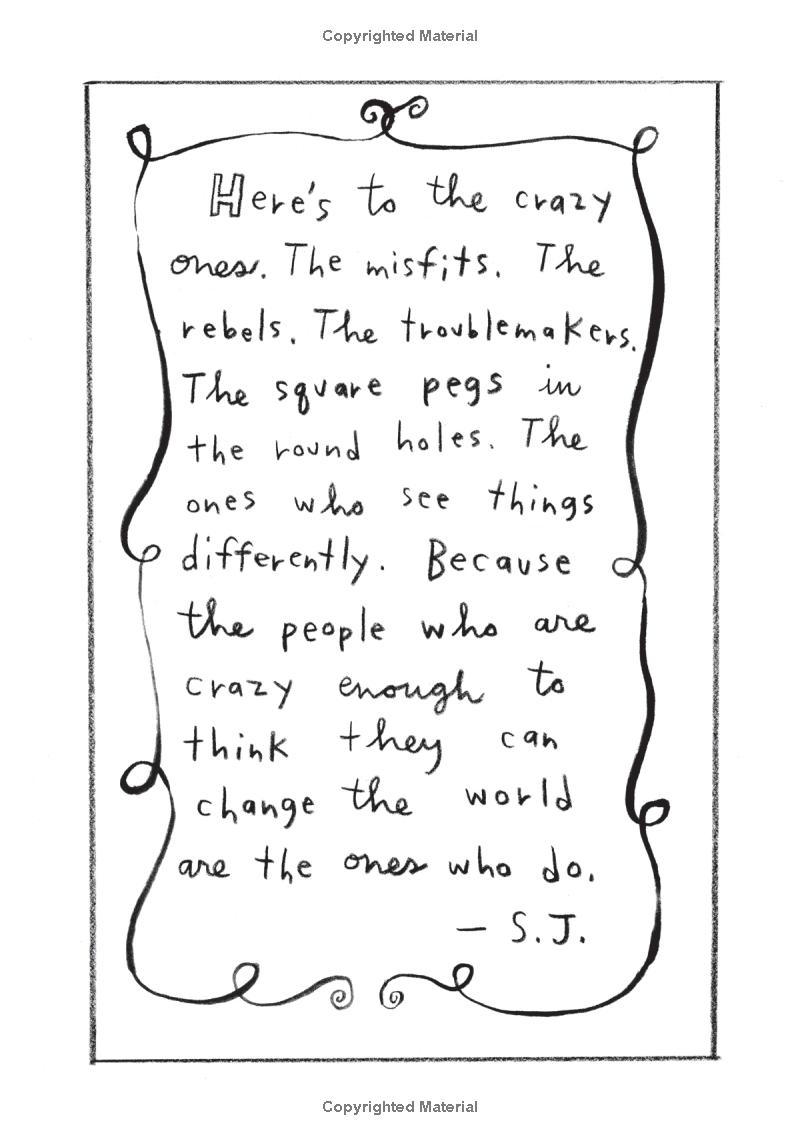 Copyrighted Material
Here's to the crazy
ones. The misfits. The
rebels. The troublemakers.
The square pegs in
the round holes. The
ones who see things
differently. Because
the people who are
crazy enough to
think they can
change the world
are the ones who do.
— S.J.
Copyrighted Material